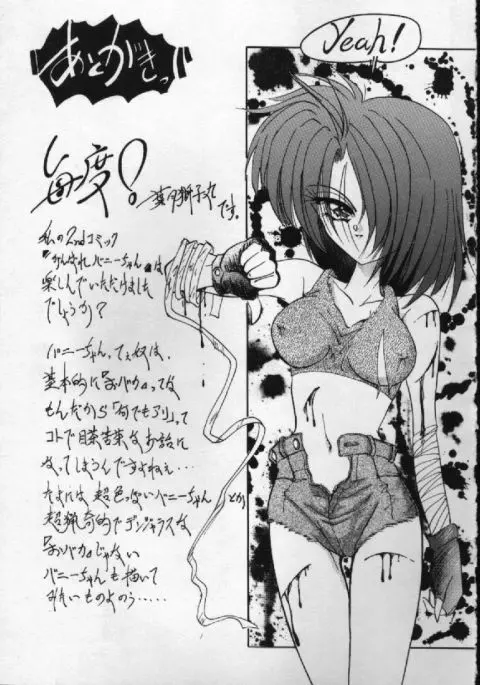 あとがきっ!!
Yeah!
毎度!
です。
私の2ndコミック
『がんばれバニーちゃん』は
楽しんでいただけました
でしょうか?
バニーちゃんってェ奴は、
基本的に『おバカ』ってな
もんだから「何でもアリ」って
コトで目茶苦茶なお話に
なってしまうんですよねェ…
たまには超色っぽいバニーちゃんとか
超猟奇的でデンジャラスな
『おバカ』じゃない
バニーちゃんも描いて
みたいものよのう……